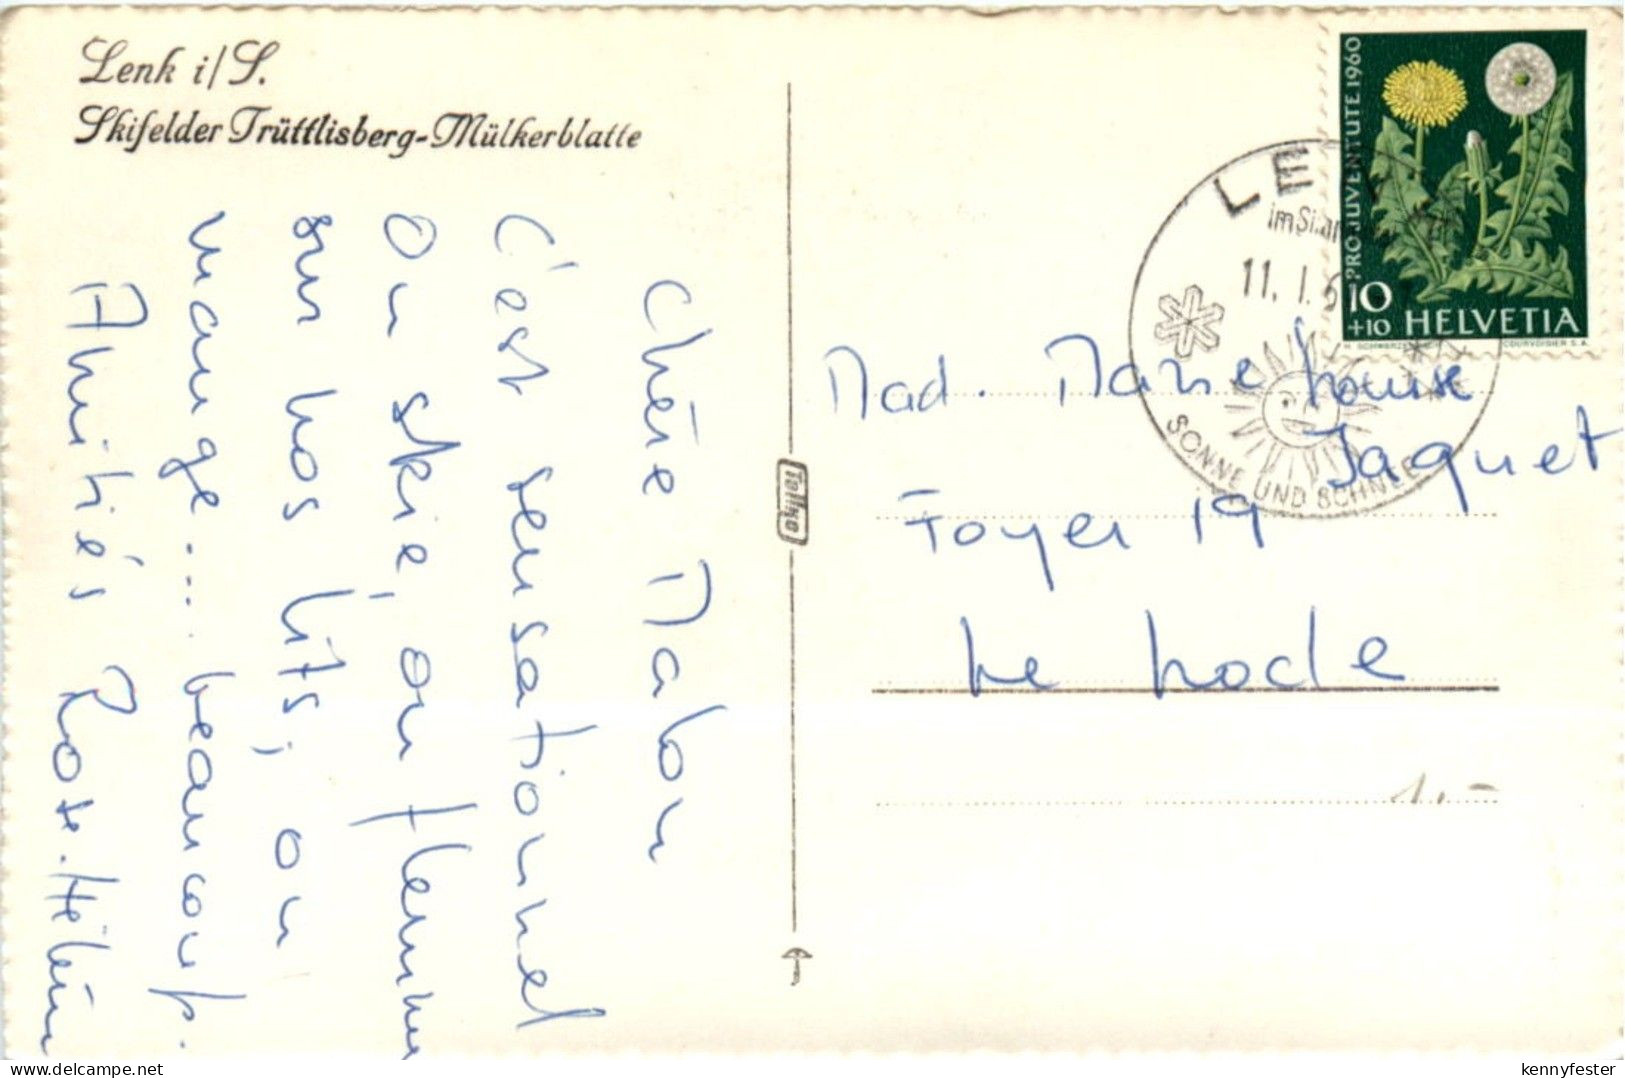 Lenk i/S.
Skifelder Trüttlisberg-Mülkerblatte
Chère Mabou
C'est sensationnel
On skie, on flemme
sur nos lits, on
mange... beaucoup.
Amitiés Rose-Hélène
Telko
LENK
im Sim
11. 1. 6
SONNE UND SCHNEE
PRO JUVENTUTE 1960
10
+10 HELVETIA
COURVOISIER S.A.
Mad. Marie Louise
Jaquet
Foyer 19
Le Locle
1.-
delcampe.net
kennyfester